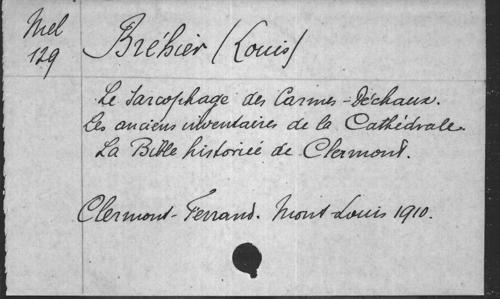 Mel
129
Bréhier (Louis)
Le Sarcophage des Carmes-Déchaux.
Les anciens inventaires de la Cathédrale.
La Bible historiée de Clermont.
Clermont-Ferrand. Mont-Louis 1910.